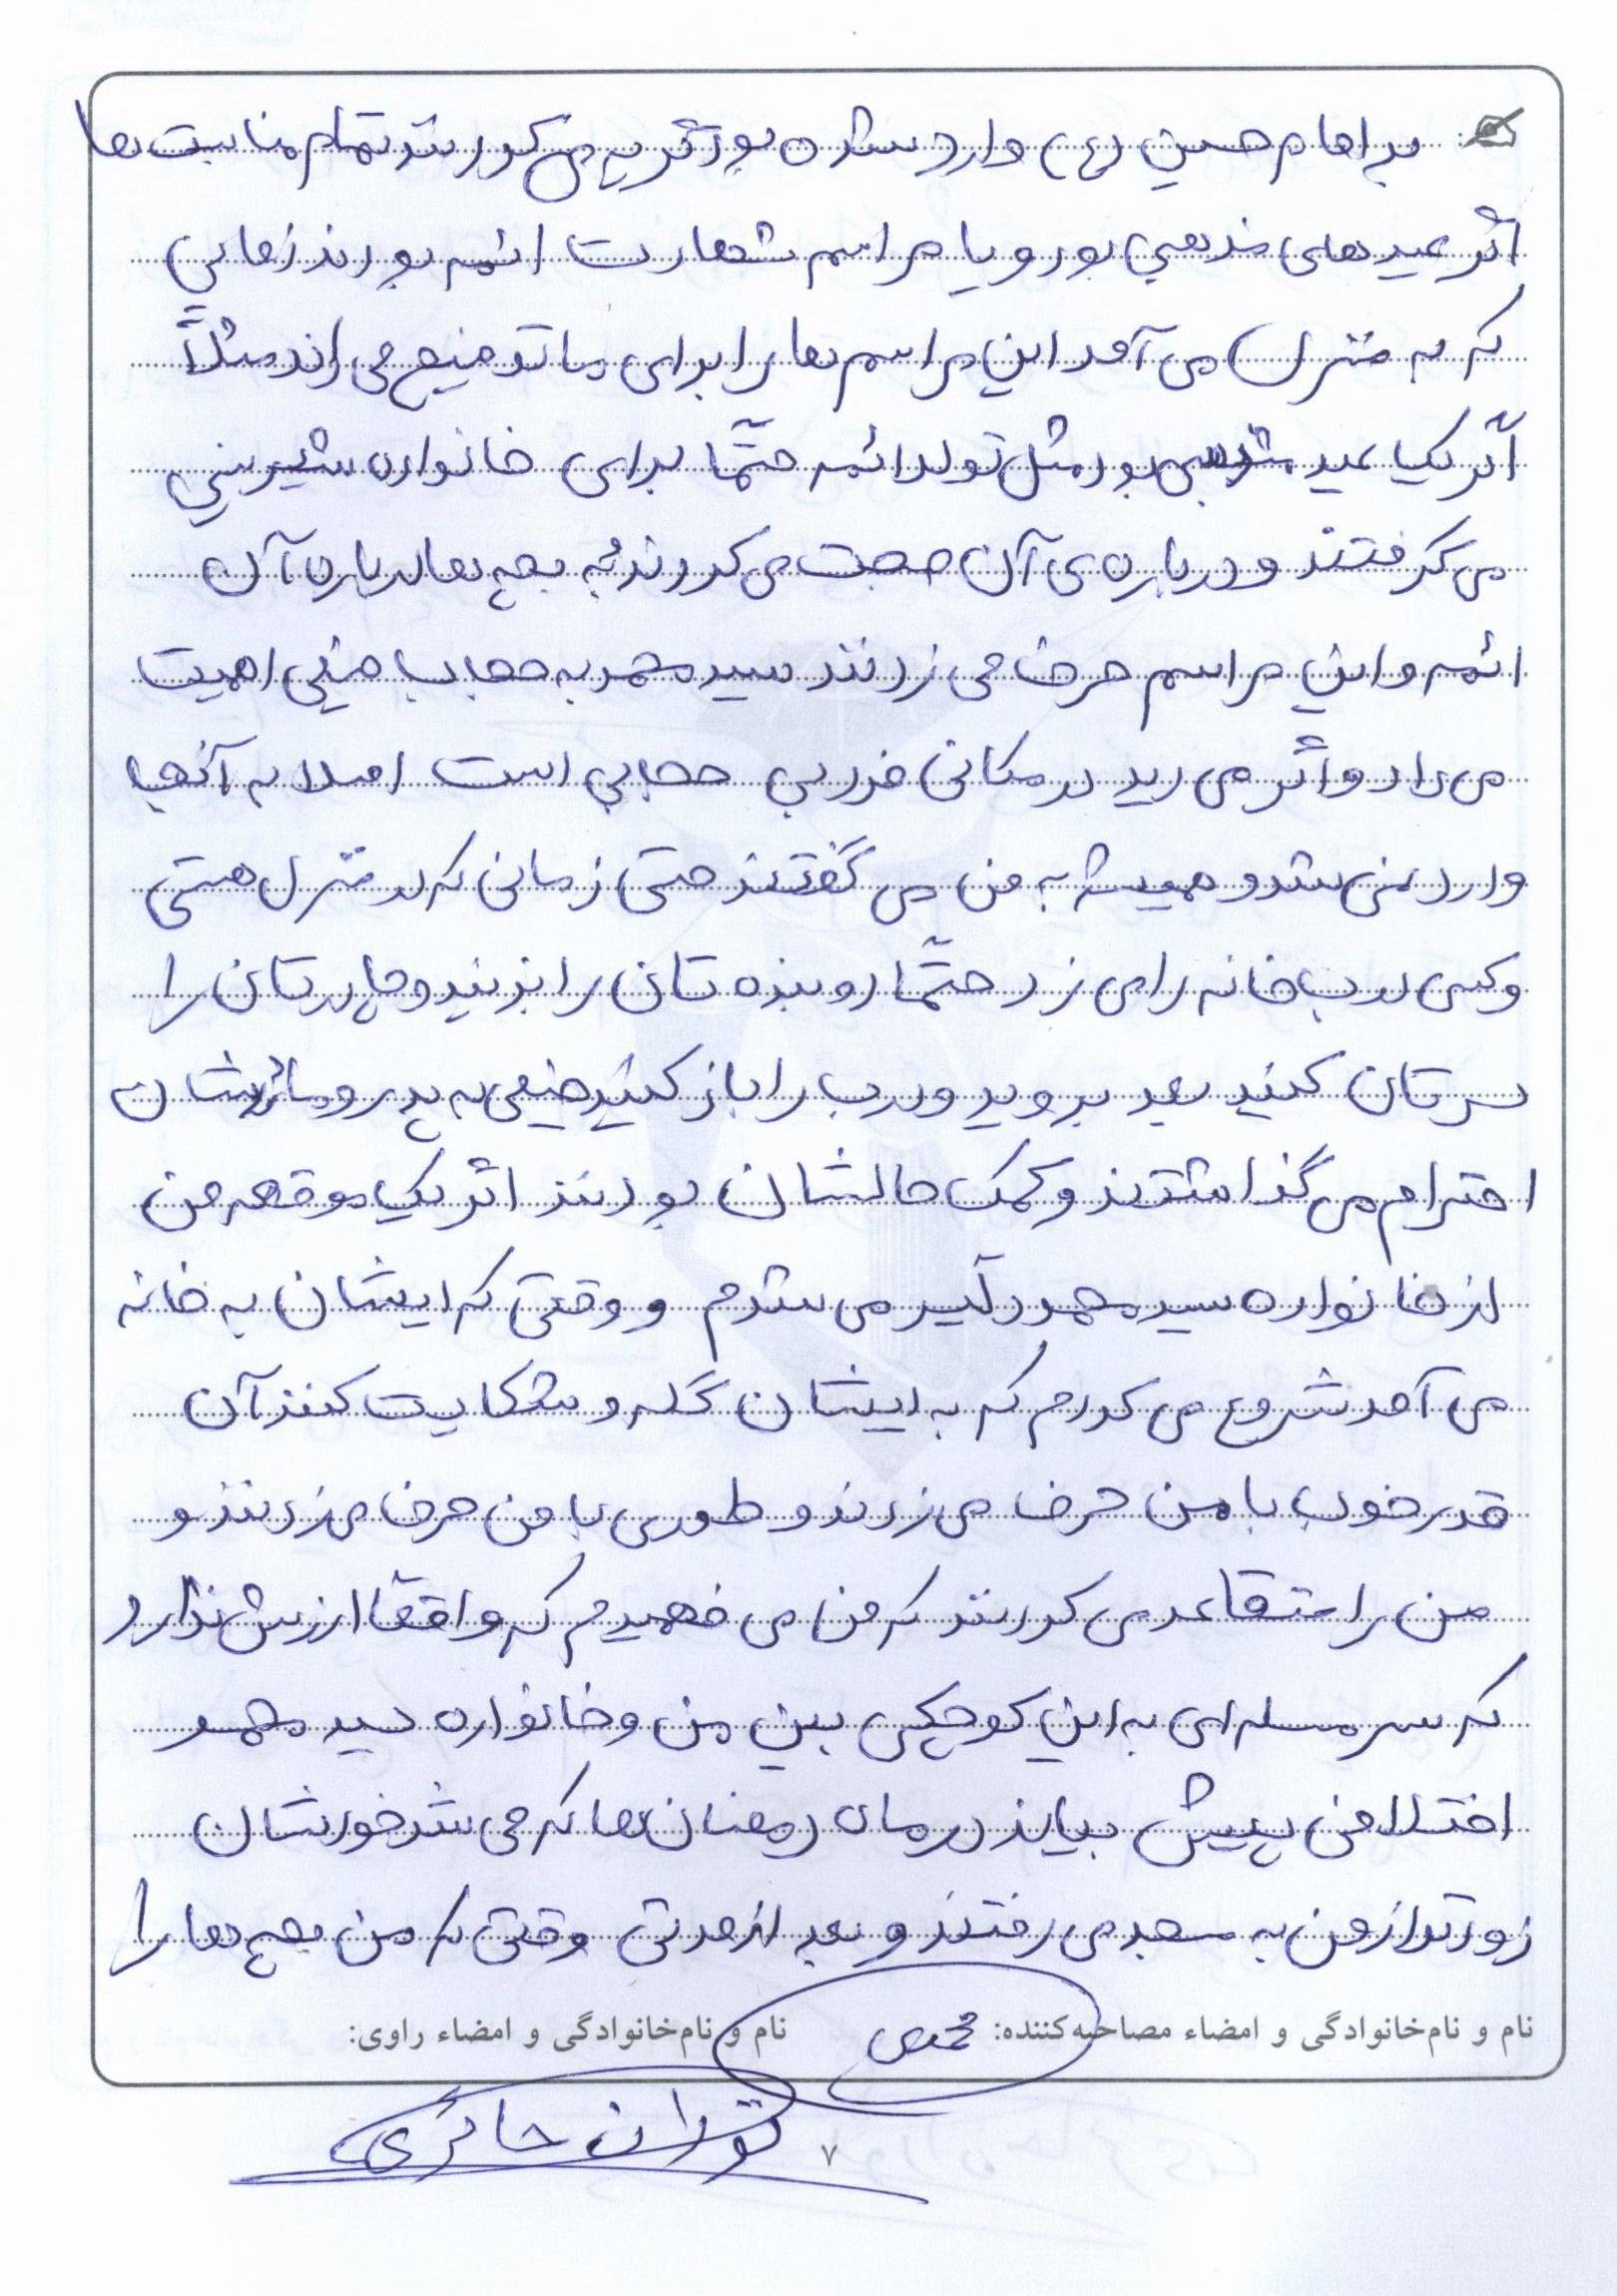 بر امام حسین (ع) وارد شده بود گریه می کردند تمام مناسبت ها
اگر عیدهای مذهبی بود و یا مراسم شهادت ائمه بودند زمانی
که به منزل می آمد این مراسم ها را برای ما توضیح می داند مثلاً
اگر یک عید مذهبی بود مثل تولد ائمه حتماً برای خانواده شیرینی
می گرفتند و درباره ی آن صحبت می کردند به بچه ها درباره آن
ائمه و این مراسم حرف می زدند سید محمد به حجاب خیلی اهمیت
می داد و اگر می دید در مکانی فرد بی حجابی است اصلا به آنجا
وارد نمی شد و همیشه به من می گفتند حتی زمانی که در منزل هستی
و کسی درب خانه را می زد حتماً روبنده تان را بزنید و چادرتان را
سرتان کنید بعد بروید و درب را باز کنید خیلی به پدر و مادرشان
احترام می گذاشتند و کمک حالشان بودند اگر یک موقعه من
از خانواده سید محمد دلگیر می شدم و وقتی که ایشان به خانه
می آمد شروع می کردم که به ایشان گله و شکایت کنند آن
قدر خوب با من حرف می زدند و طوری با من حرف می زدند و
من را متقاعد می کردند که من می فهمیدم که واقعاً ارزش ندارد
که سر مسله ای به این کوچکی بین من و خانواده سید محمد
اختلافی پیش بیاید در ماه رمضان ها که می شد خودشان
زودتر از من به مسجد می رفتند و بعد از مدتی وقتی که من بچه ها را
نام و نام‌خانوادگی و امضاء مصاحبه‌کننده: محمدی نام و نام‌خانوادگی و امضاء راوی:
توران حائری
۷